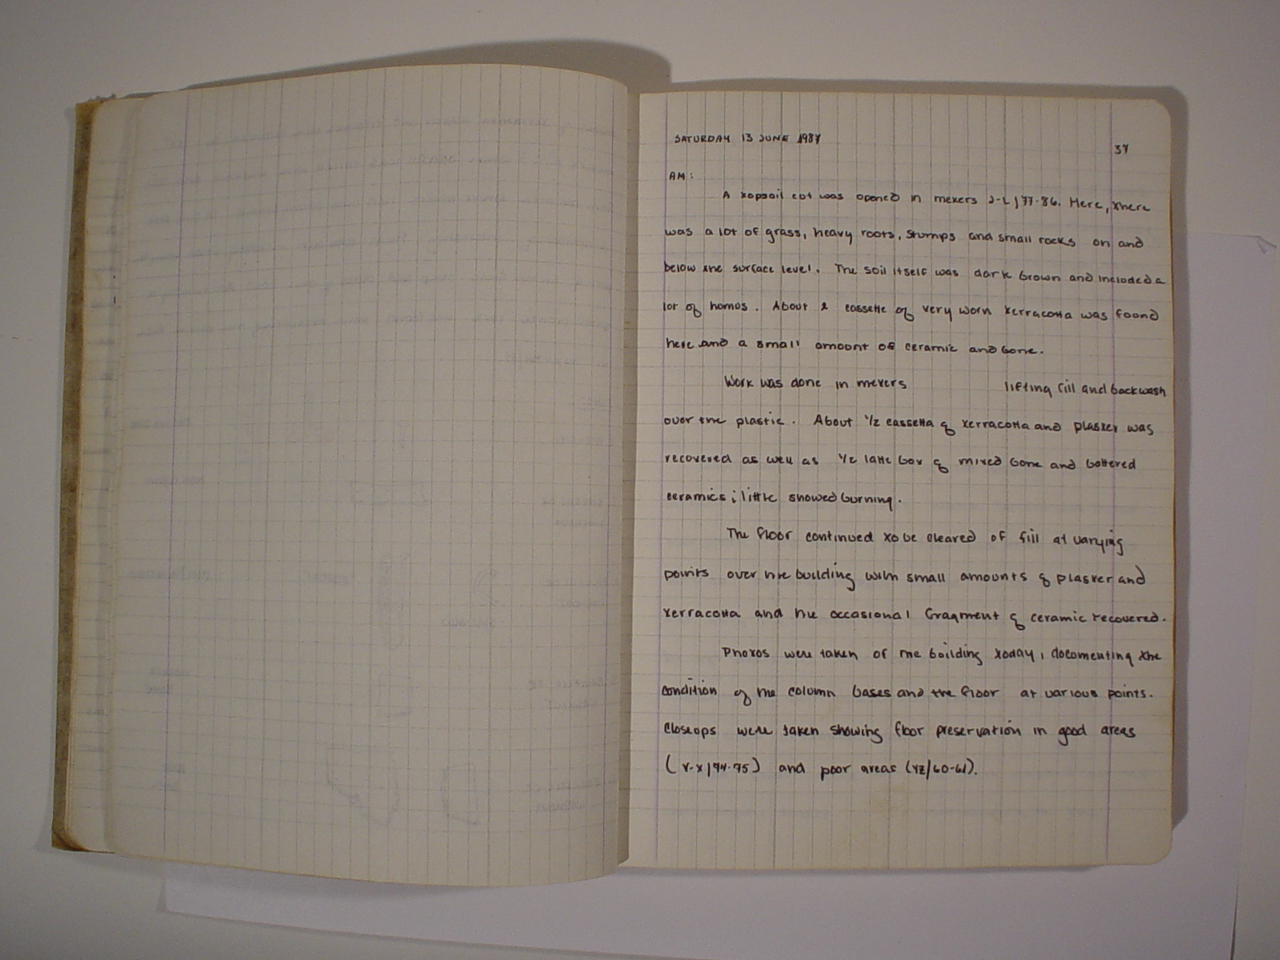 SATURDAY 13 JUNE 1987
37
AM:
A topsoil cut was opened in meters J-L/77-86. Here, there
was a lot of grass, heavy roots, stumps and small rocks on and
below the surface level. The soil itself was dark brown and included a
lot of homos. About 1 cassette of very worn terracotta was found
here and a small amount of ceramic and bone.
Work was done in meters lifting fill and backwash
over the plastic. About 1/2 cassetta of terracotta and plaster was
recovered as well as 1/2 latte box of mixed bone and battered
ceramics; little showed burning.
The floor continued to be cleared of fill at varying
points over the building with small amounts of plaster and
terracotta and the occasional fragment of ceramic recovered.
Photos were taken of the building today, documenting the
condition of the column bases and the floor at various points.
Closeups were taken showing floor preservation in good areas
(V-X/74-75) and poor areas (YZ/60-61).